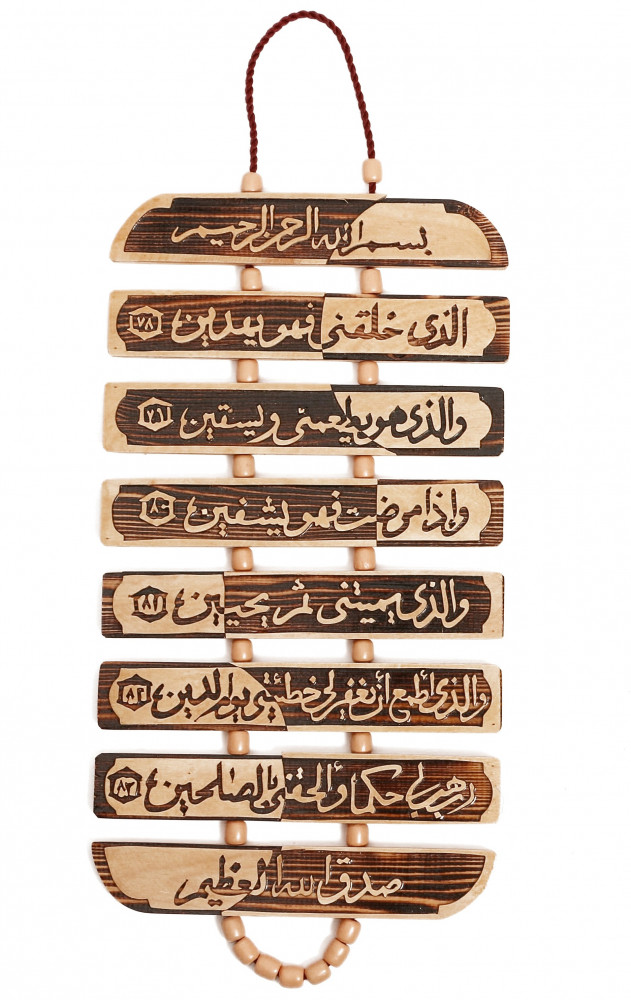 بسم الله الرحمن الرحيم
الذى خلقنى فهو يهدين ٧٨
والذى هو يطعمنى ويسقين ٧٩
وإذا مرضت فهو يشفين ٨٠
والذى يميتنى ثم يحيين ٨١
والذى أطمع أن يغفر لى خطئيتى يوم الدين ٨٢
رب هب لى حكما وألحقنى بالصلحين ٨٣
صدق الله العظيم